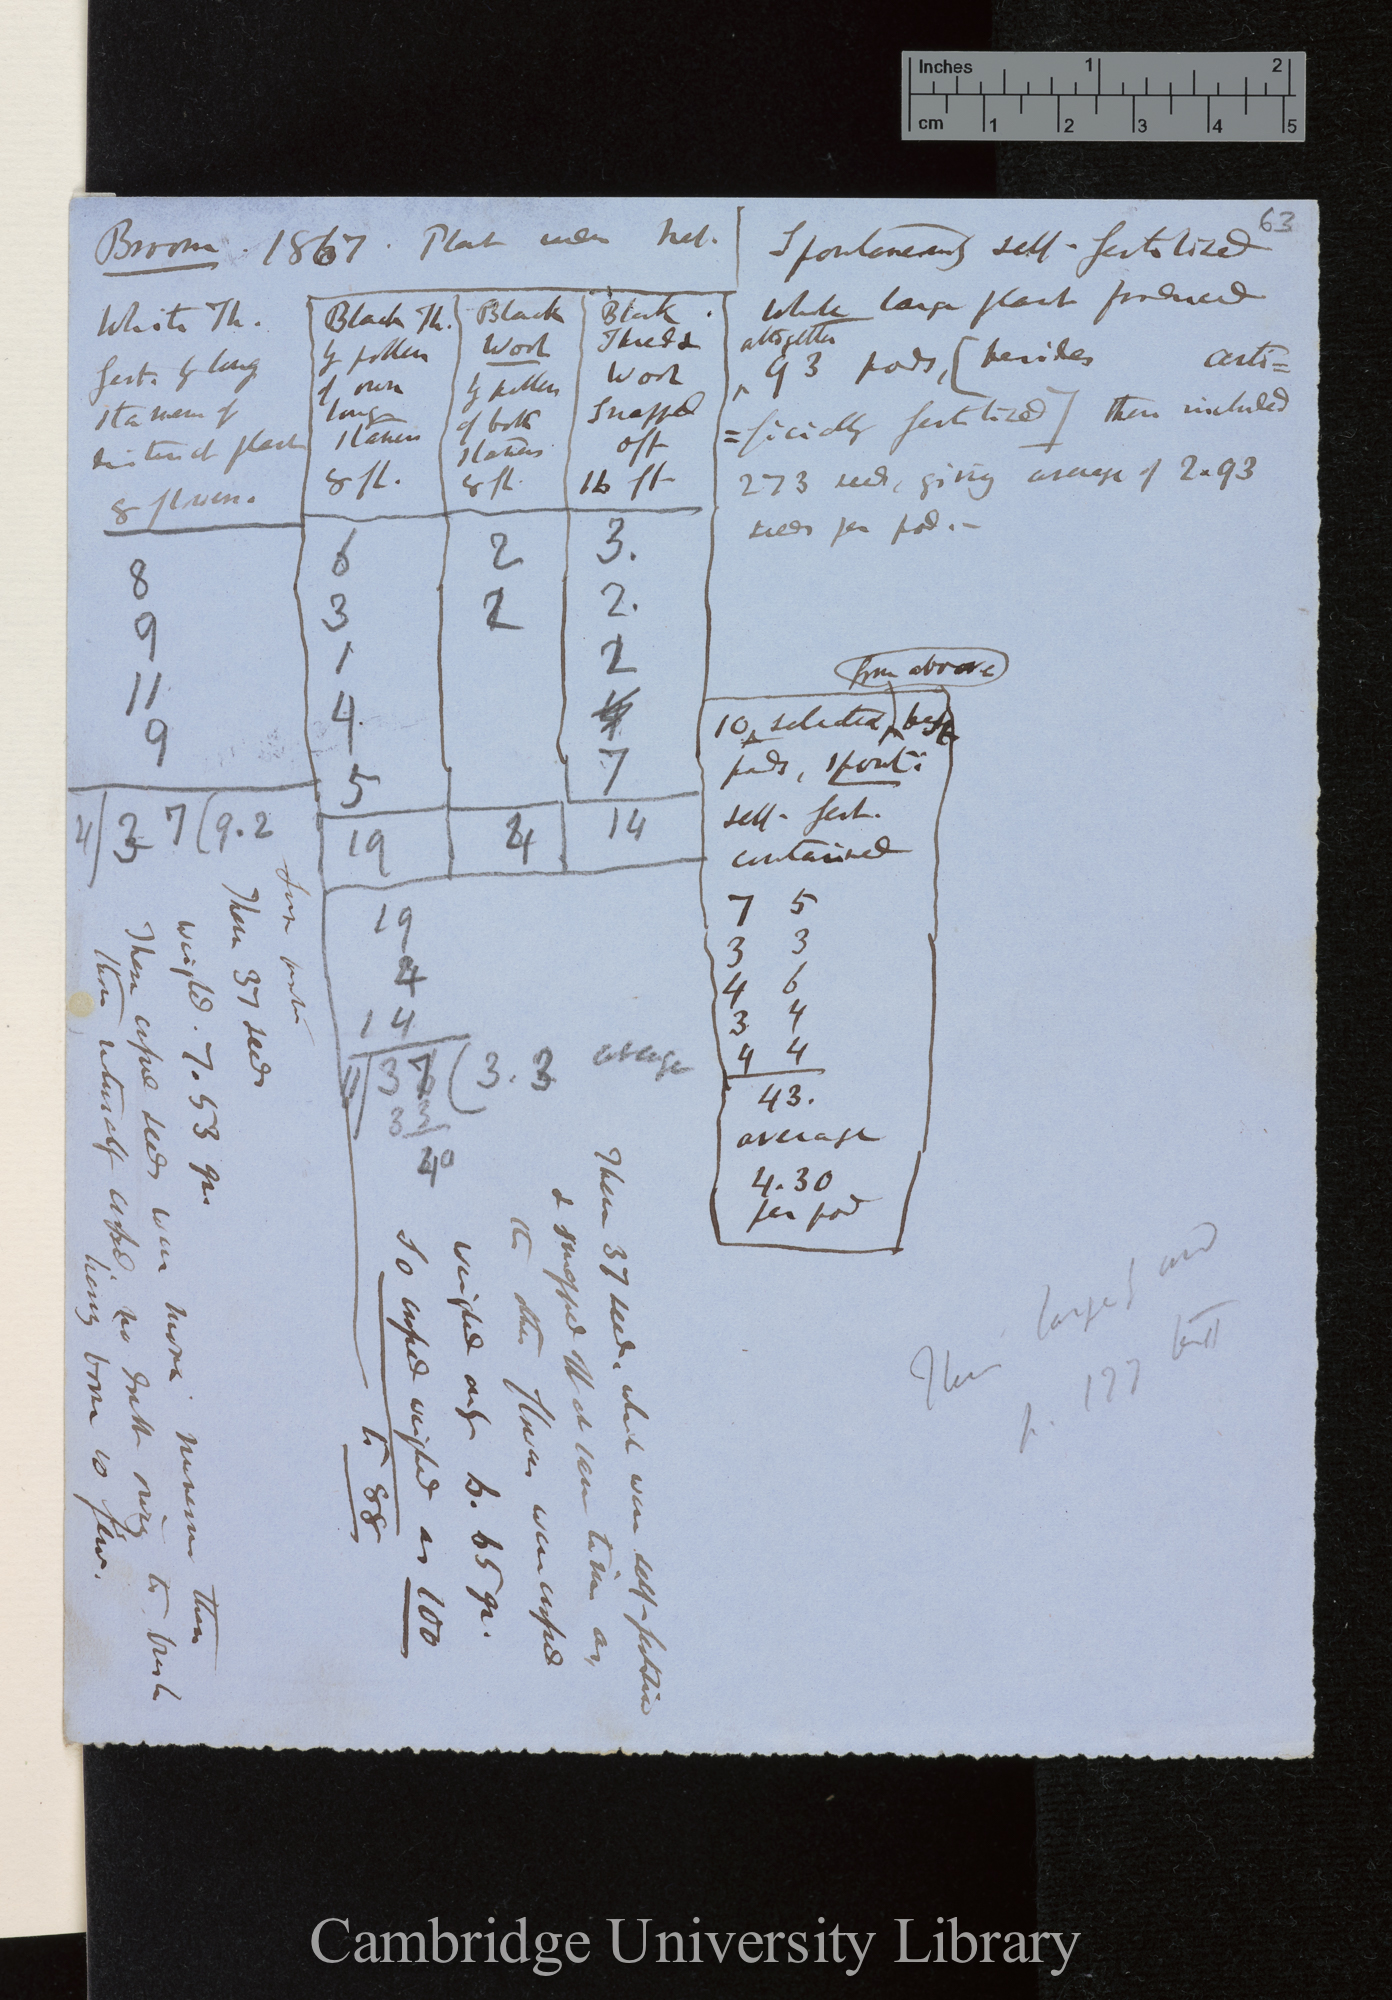 63
Inches 1 2
cm 1 2 3 4 5
Broom. 1867. Plant under Net.
White Th.
fert. by long
stamens of
distinct plant
8 flowers.
8
9
11
9
4/37(9.2
Black Th.
by pollen
of own
long
stamens
8 fl.
6
3
1
4
5
19
Black
Wool
by pollen
of both
stamens
8 fl.
2
2
4
Black
Thread &
Wool
Snapped
off
16 fl
3.
2.
2
4
7
14
19
4
14
11/37(3.3 average
33
40
Spontaneously self-fertilized
Whole large plant produced
altogether
93 pods, [besides arti=
=ficially fertilized] these included
273 seeds, giving average of 2.93
seeds per pod.-
from above
10 selected, best
pods, spont:
self-fert.
contained
7 5
3 3
4 6
3 4
4 4
43.
average
4.30
per pod
These 37 seeds
weighed. 7.53 gr.
These crossed seeds were more numerous than
those naturally crossed. no doubt owing to bush
having borne so few.
These 37 seeds which were self-fertilised
& snapped at same time as,
the other flowers were crossed
weighed only 6.65 gr.
So crossed weighed as 100
to 88
Then large
p. 177
Cambridge University Library